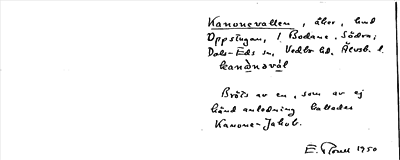 Kanonevallen, åker, hmd
Oppstugan, 1 Bodane, Södra,
Dals-Eds sn, Vedbo hd, Älvsb. l.
kanånəval
Bröts av en, som av ej
känd anledning kallades
Kanone-Jakob.
1950